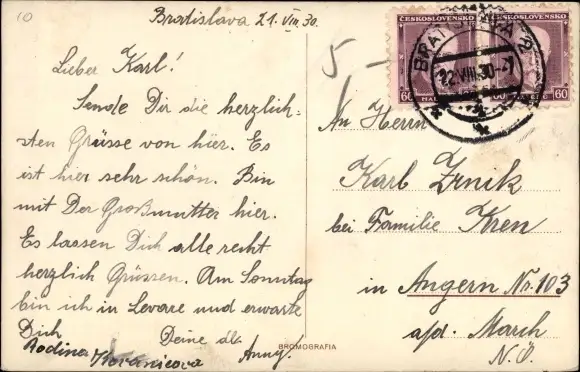 10
Bratislava 21. VIII. 30.
Lieber Karl!
Sende Dir die herzlich-
sten Grüsse von hier. Es
ist hier sehr schön. Bin
mit Der Großmutter hier.
Es lassen Dich alle recht
herzlich Grüssen. Am Sonntag
bin ich in Levare und erwarte
Dich
Deine dlb. Anny.
Rodina Kovanicova
BROMOGRAFIA
5-
ČESKOSLOVENSKO
60
HALÉŘŮ
60
BRATISLAVA 2
22.VIII.30
An Herrn
Karl Zrnik
bei Familie Kren
in Angern Nr. 103
a/d. March
N.Ö.